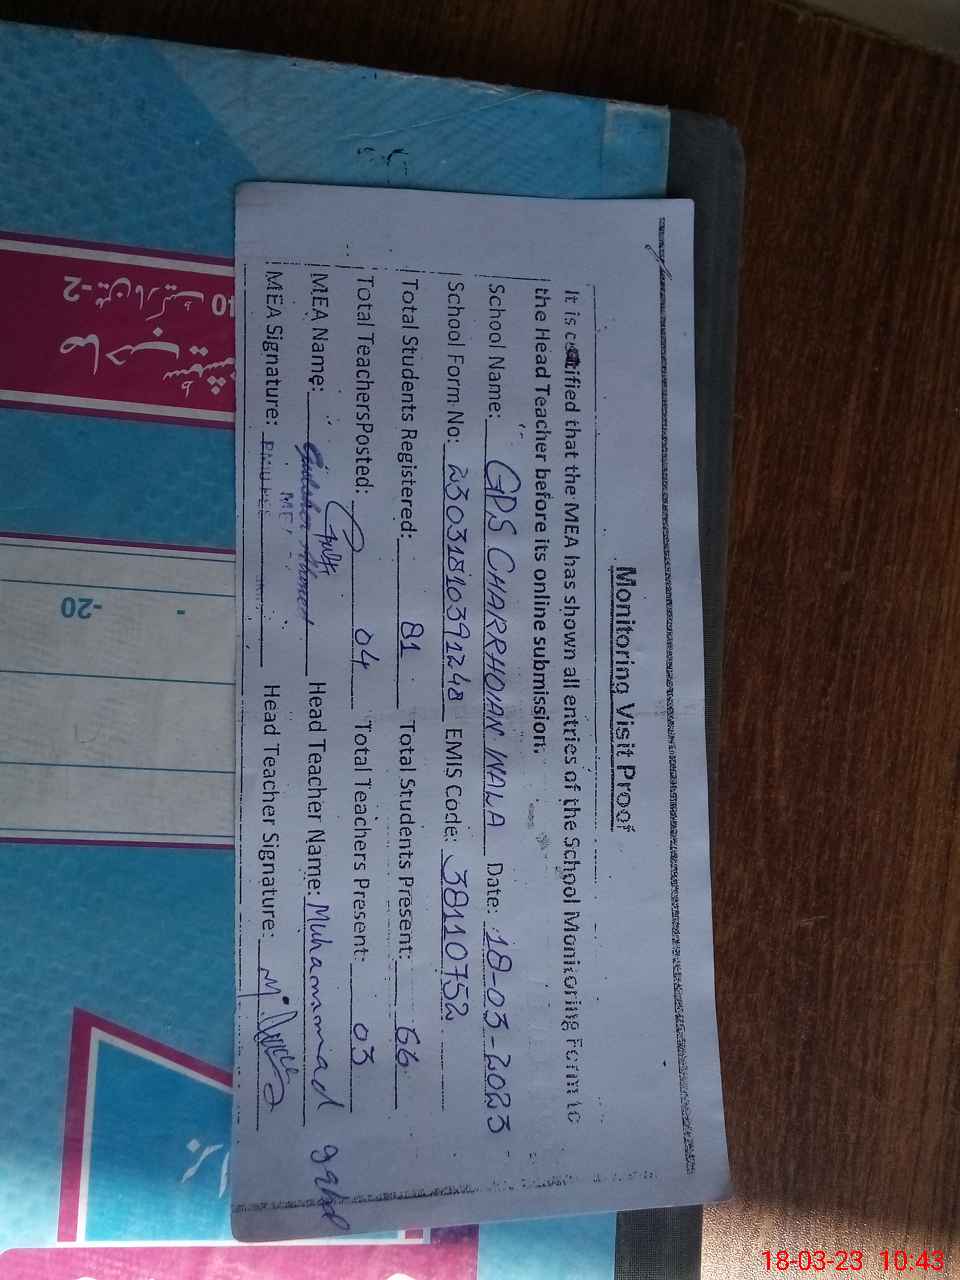 Monitoring Visit Proof
It is certified that the MEA has shown all entries of the School Monitoring Form to
the Head Teacher before its online submission.
School Name: GPS CHARRHOIAN WALA Date: 18-03-2023
School Form No: 23031810391248 EMIS Code: 38110752
Total Students Registered: 81 Total Students Present: 66
Total TeachersPosted: 04 Total Teachers Present: 03
MEA Name: Gulsher Ahmed Head Teacher Name: Muhammad
MEA Signature: Head Teacher Signature:
-20
-
18-03-23 10:43